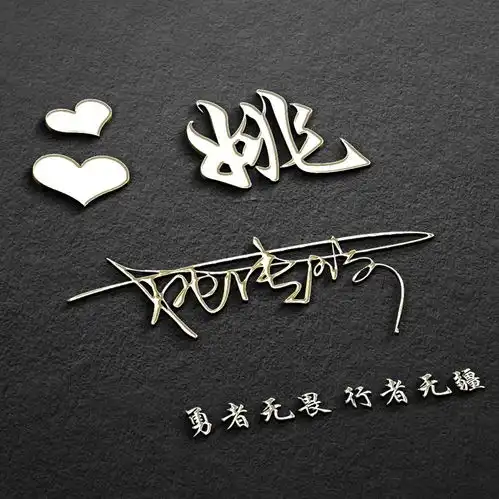 姚
勇者无畏 行者无疆